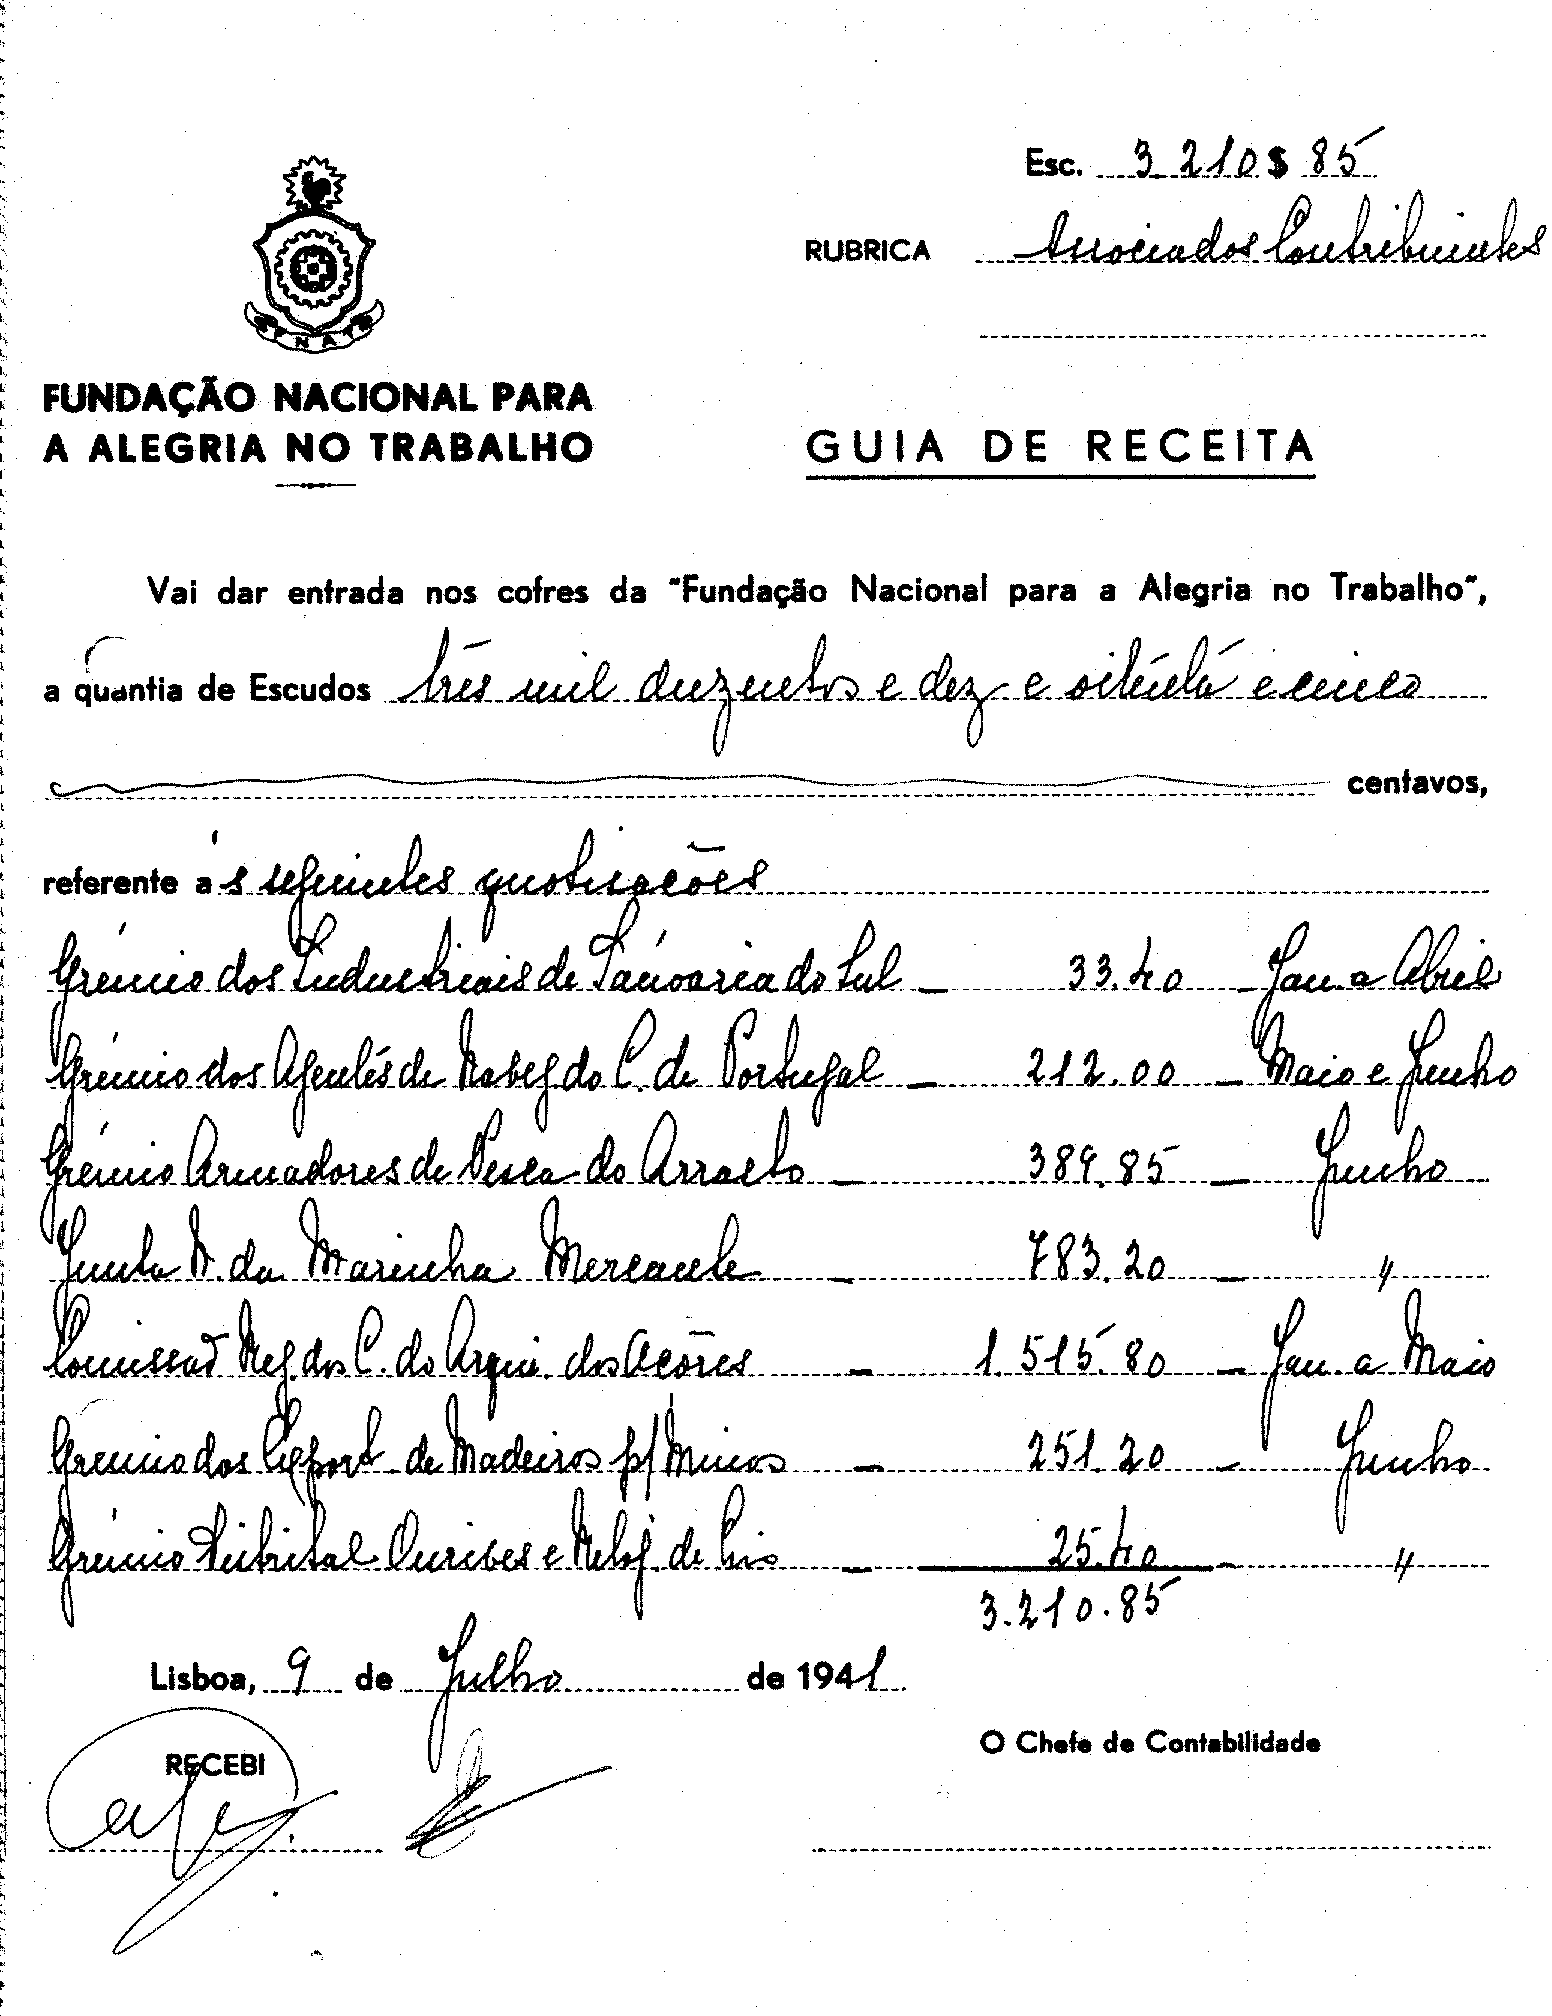 Esc. 3.210$85
RUBRICA Associados Contribuintes
FNAT
FUNDAÇÃO NACIONAL PARA
A ALEGRIA NO TRABALHO
GUIA DE RECEITA
Vai dar entrada nos cofres da "Fundação Nacional para a Alegria no Trabalho",
a quantia de Escudos três mil duzentos e dez e oitenta e cinco
centavos,
referente às seguintes quotisações
Grémio dos Industriais de Tanoaria do Sul — 33.40 — Jan. a Abril
Grémio dos Agentes de Naveg do C. de Portugal — 212.00 — Maio e Junho
Grémio Armadores de Pesca do Arrasto — 389.85 — Junho
Junta N. da Marinha Mercante — 783.20 — "
Comissão Reg. dos C. do Arqui. dos Açores — 1.515.80 — Jan. a Maio
Grémio dos Export. de Madeiras p/ Minas — 251.20 — Junho
Grémio Distrital Ourives e Reloj. de — 25.40 — "
3.210.85
Lisboa, 9 de Julho de 1941
O Chefe de Contabilidade
RECEBI